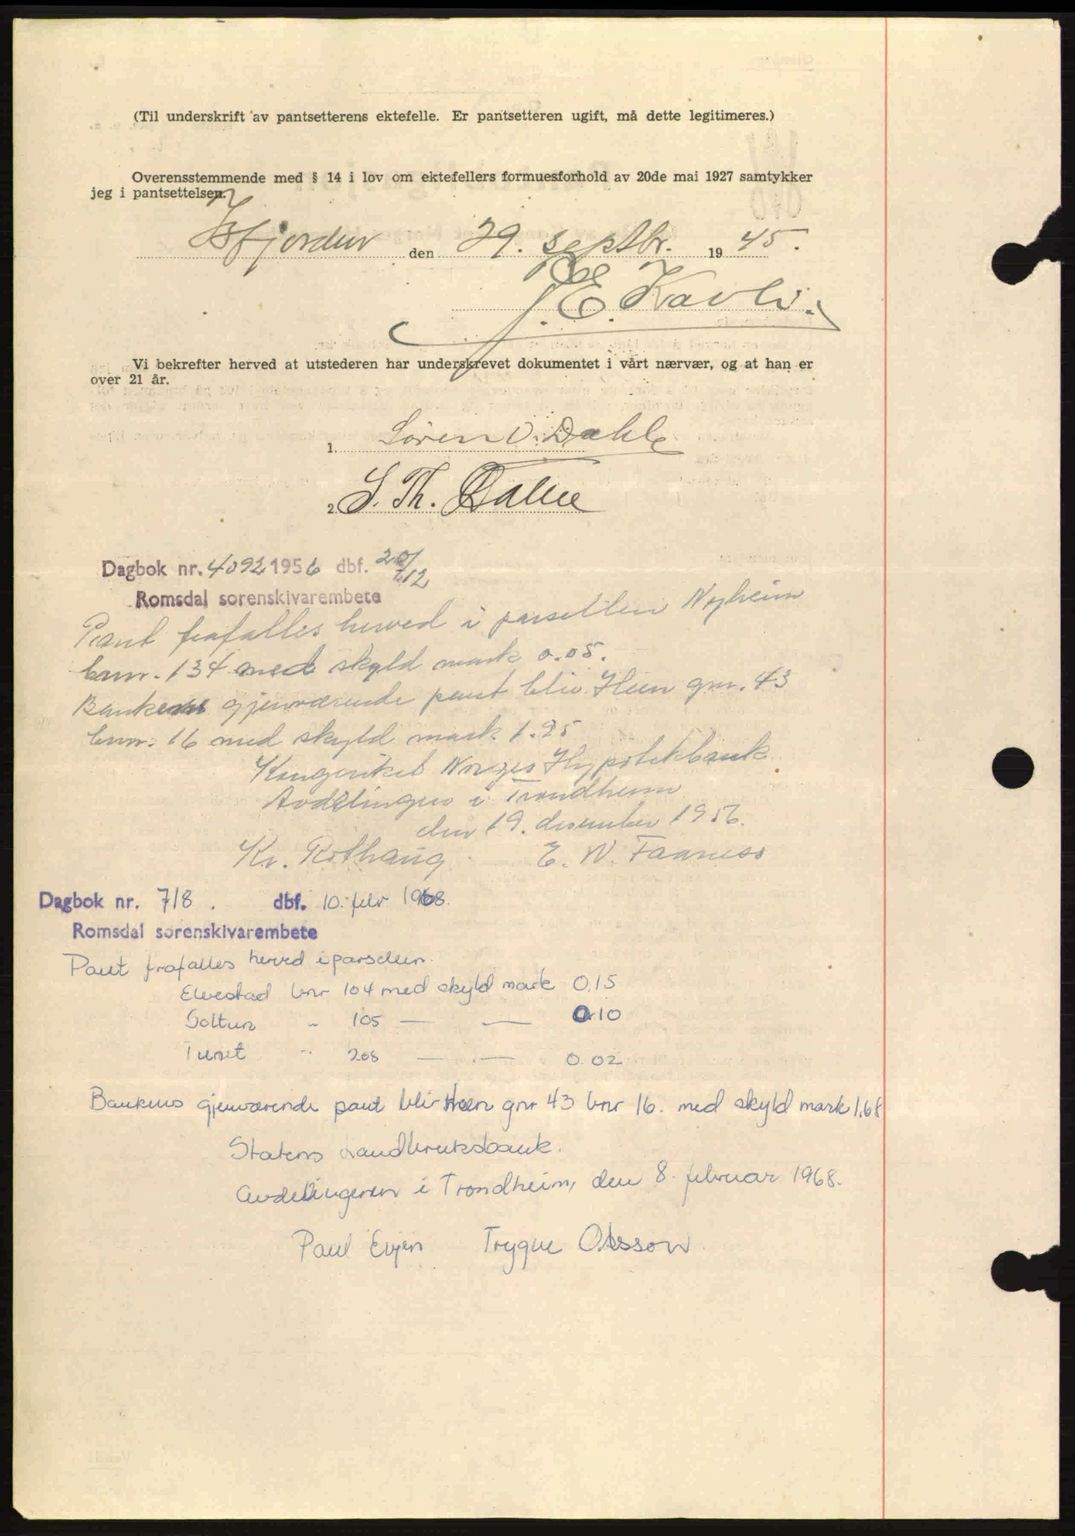 (Til underskrift av pantsetterens ektefelle. Er pantsetteren ugift, må dette legitimeres.)
Overensstemmende med § 14 i lov om ektefellers formuesforhold av 20de mai 1927 samtykker
jeg i pantsettelsen.
Isfjorden den 29. septbr. 1945.
J. E. Kavli.
Vi bekrefter herved at utstederen har underskrevet dokumentet i vårt nærvær, og at han er
over 21 år.
1. Søren V. Dahle
2. S. Th. Dahle
Dagbok nr. 4092 1956 dbf. 20/12
Romsdal sorenskrivarembete
Pant frafalles herved i parsellen Nyheim
bnr. 134 med skyld mark 0.05.
Bankens gjenværende pant blir Hen gnr. 43
bnr. 16 med skyld mark 1.95
Kongeriket Norges Hypotekbank
Avdelingen i Trondheim
den 19. desember 1956.
Kr. Rothaug E. W. Faaness
Dagbok nr. 718. dbf. 10. febr 1968.
Romsdal sorenskrivarembete
Pant frafalles herved i parsellen.
Elvestad bnr 104 med skyld mark 0.15
Soltun " 105 — — 0.10
Tunet " 208 — — 0.02
Bankens gjenværende pant blir Hen gnr 43 bnr 16. med skyld mark 1.68
Statens Landbruksbank.
Avdelingen i Trondheim, den 8. februar 1968.
Paul Evjen Trygve Olsson